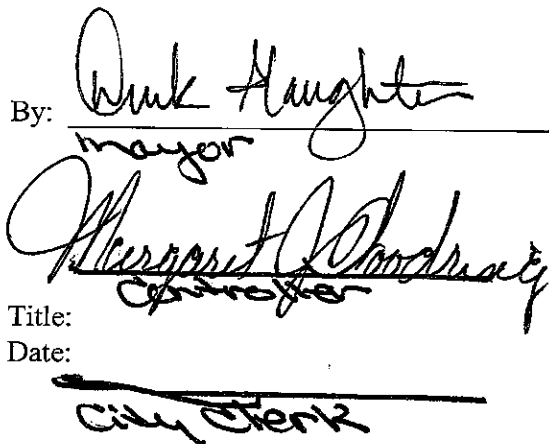 By: Haughton
mayor
Margaret J. Woodring
Controller
Title:
Date:
City Clerk